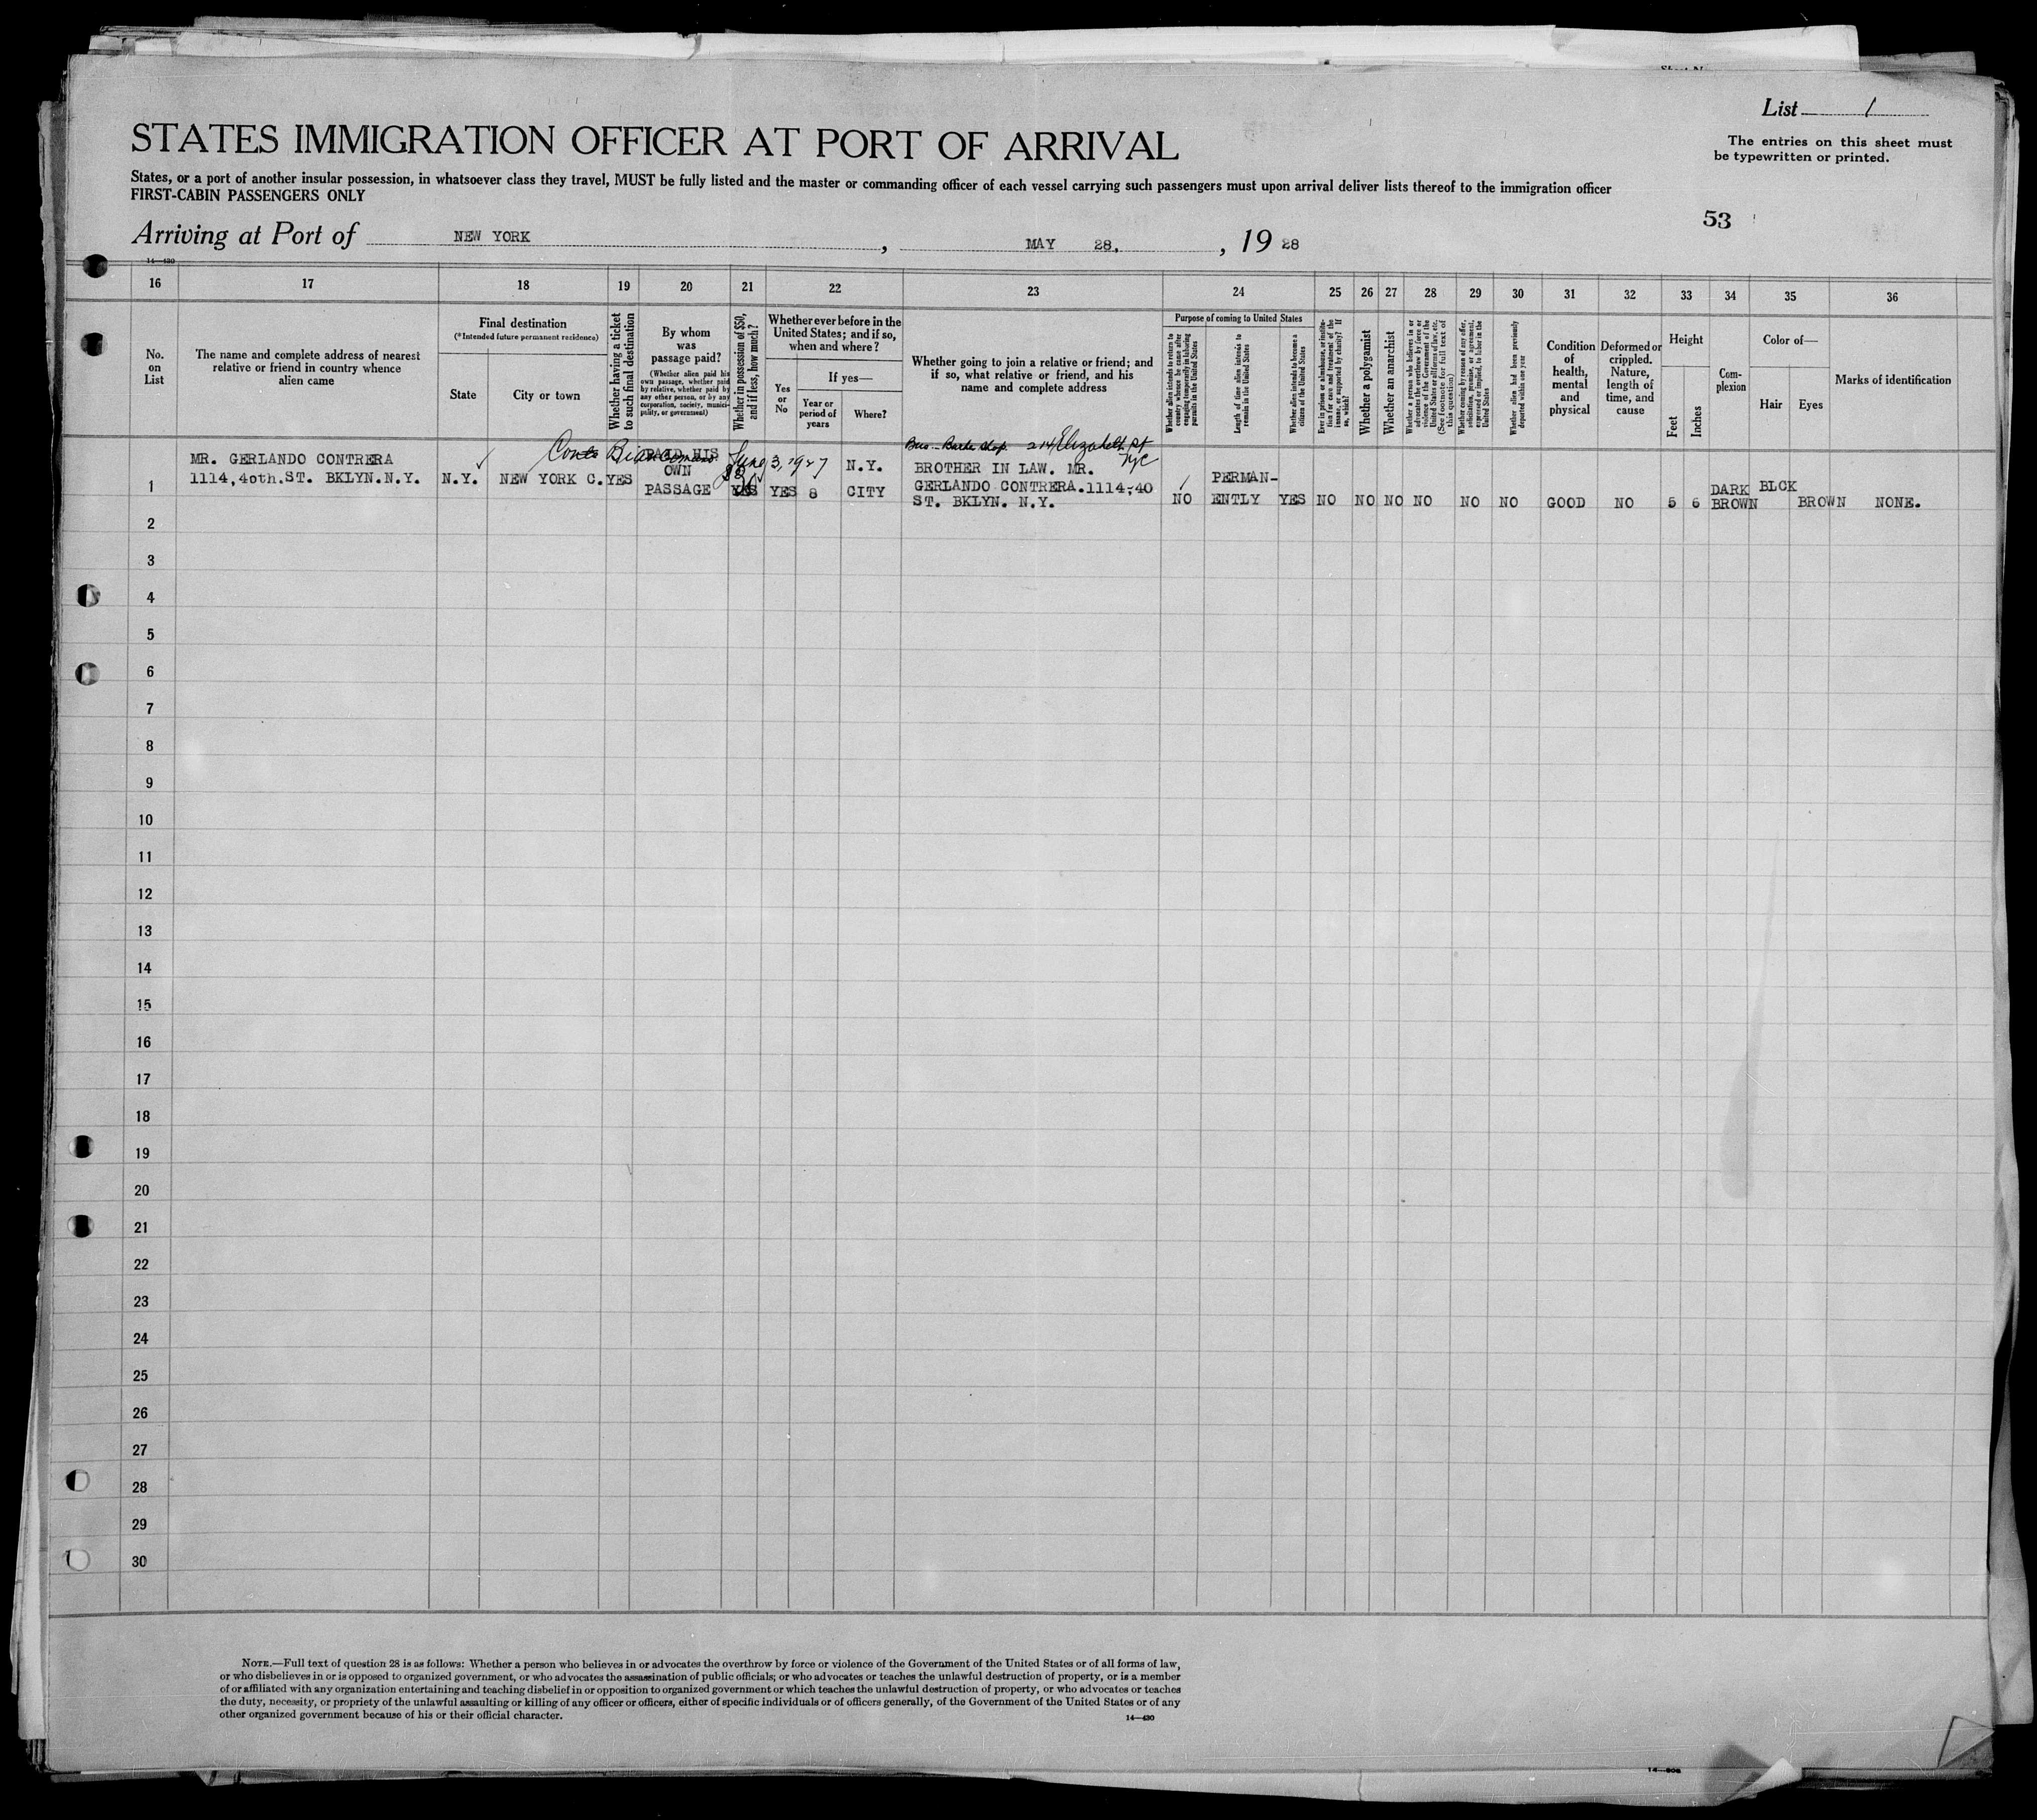 List 1
STATES IMMIGRATION OFFICER AT PORT OF ARRIVAL
The entries on this sheet must
be typewritten or printed.
States, or a port of another insular possession, in whatsoever class they travel, MUST be fully listed and the master or commanding officer of each vessel carrying such passengers must upon arrival deliver lists thereof to the immigration officer
FIRST-CABIN PASSENGERS ONLY
53
Arriving at Port of NEW YORK, MAY 28, , 19 28
14—430
16 17 18 19 20 21 22 23 24 25 26 27 28 29 30 31 32 33 34 35 36
No.
on
List
The name and complete address of nearest
relative or friend in country whence
alien came
Final destination
(*Intended future permanent residence)
State
City or town
Whether having a ticket
to such final destination
By whom
was
passage paid?
(Whether alien paid his
own passage, whether paid
by relative, whether paid by
any other person, or by any
corporation, society, munici-
pality, or government)
Whether in possession of $50,
and if less, how much?
Whether ever before in the
United States; and if so,
when and where?
Yes
or
No
If yes—
Year or
period of
years
Where?
Whether going to join a relative or friend; and
if so, what relative or friend, and his
name and complete address
Purpose of coming to United States
Whether alien intends to return to
country whence he came after
engaging temporarily in laboring
pursuits in the United States
Length of time alien intends to
remain in the United States
Whether alien intends to become a
citizen of the United States
Ever in prison or almshouse, or institu-
tion for care and treatment of the
insane, or supported by charity? If
so, which?
Whether a polygamist
Whether an anarchist
Whether a person who believes in or
advocates the overthrow by force or
violence of the Government of the
United States or all forms of law, etc.
(See footnote for full text of
this question)
Whether coming by reason of any offer,
solicitation, promise, or agreement,
expressed or implied, to labor in the
United States
Whether alien had been previously
deported within one year
Condition
of
health,
mental
and
physical
Deformed or
crippled.
Nature,
length of
time, and
cause
Height
Feet
Inches
Com-
plexion
Color of—
Hair
Eyes
Marks of identification
Conte Biancamano June 3, 1927
214 Elizabeth St
NYC
1
MR. GERLANDO CONTRERA
1114,40th.ST. BKLYN.N.Y.
N.Y.
NEW YORK C.
YES
PAID HIS
OWN
PASSAGE
YES
YES
8
N.Y.
CITY
BROTHER IN LAW. MR.
GERLANDO CONTRERA.1114-40
ST. BKLYN. N.Y.
NO
PERMAN-
ENTLY
YES
NO
NO
NO
NO
NO
NO
GOOD
NO
5
6
DARK
BROWN
BLCK
BROWN
NONE.
2
3
4
5
6
7
8
9
10
11
12
13
14
15
16
17
18
19
20
21
22
23
24
25
26
27
28
29
30
NOTE.—Full text of question 28 is as follows: Whether a person who believes in or advocates the overthrow by force or violence of the Government of the United States or of all forms of law,
or who disbelieves in or is opposed to organized government, or who advocates the assassination of public officials; or who advocates or teaches the unlawful destruction of property, or is a member
of or affiliated with any organization entertaining and teaching disbelief in or opposition to organized government or which teaches the unlawful destruction of property, or who advocates or teaches
the duty, necessity, or propriety of the unlawful assaulting or killing of any officer or officers, either of specific individuals or of officers generally, of the Government of the United States or of any
other organized government because of his or their official character.
14—430